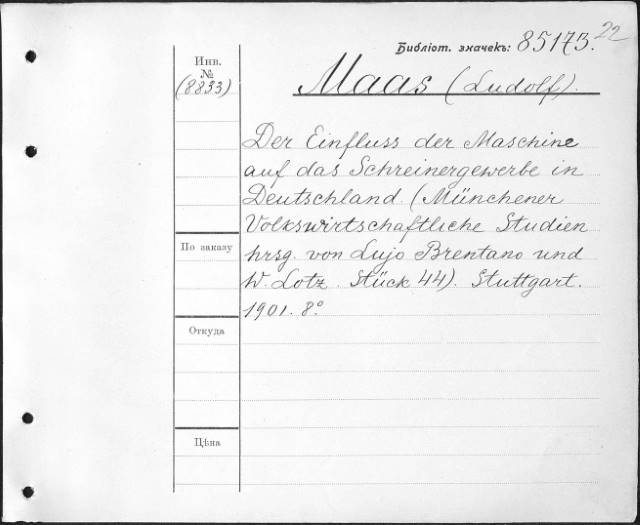 22
Библіот. значекъ: 85173.
Инв.
№
(8833)
Maas (Ludolf).
Der Einfluss der Maschine
auf das Schreinergewerbe in
Deutschland. (Münchener
Volkswirtschaftliche Studien
hrsg. von Lujo Brentano und
W. Lotz. Stück 44). Stuttgart.
1901. 8º
По заказу
Откуда
Цѣна